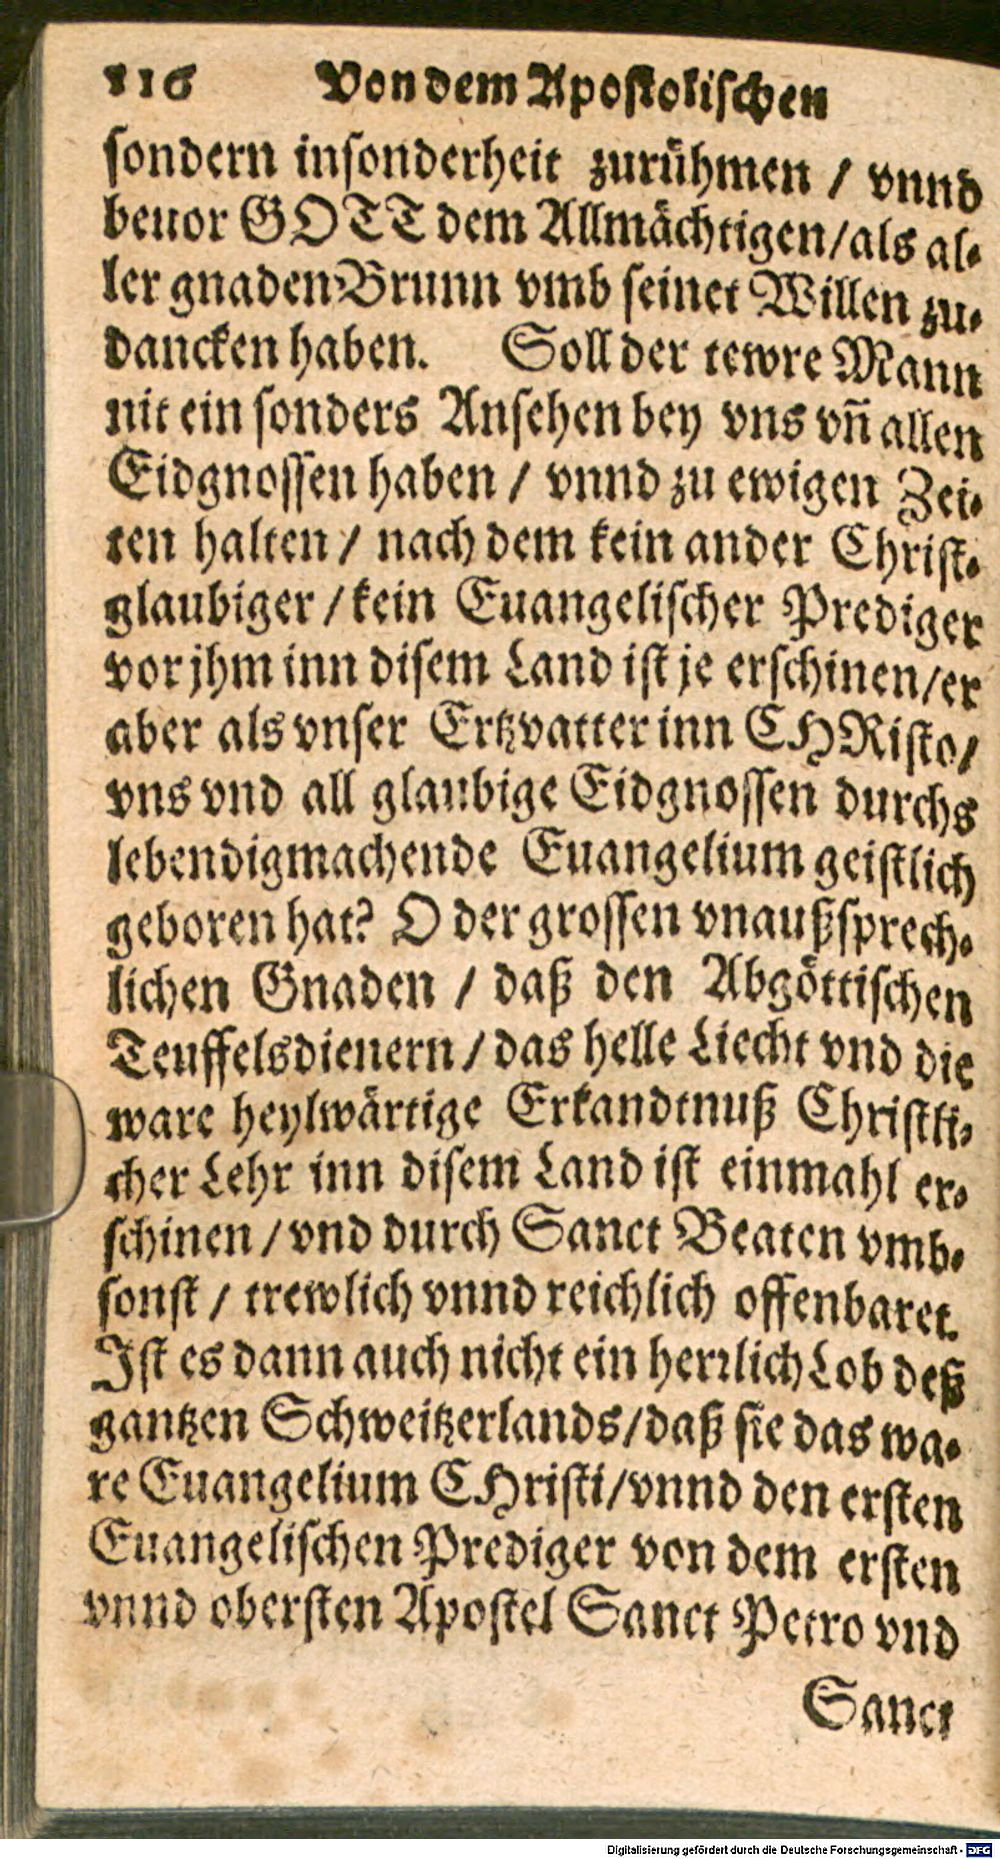 116 Von dem Apostolischen
sondern insonderheit zurühmen / vnnd
beuor GOTT dem Allmächtigen/als al-
ler gnaden Brunn vmb seinet Willen zu-
dancken haben. Soll der tewre Mann
nit ein sonders Ansehen bey vns vñ allen
Eidgnossen haben / vnnd zu ewigen Zei-
ten halten / nach dem kein ander Christ-
glaubiger / kein Euangelischer Prediger
vor jhm inn disem Land ist je erschinen/er
aber als vnser Ertzvatter inn CHRisto/
vns vnd all glaubige Eidgnossen durchs
lebendigmachende Euangelium geistlich
geboren hat? O der grossen vnaußsprech-
lichen Gnaden / daß den Abgöttischen
Teuffelsdienern / das helle Liecht vnd die
ware heylwärtige Erkandtnuß Christli-
cher Lehr inn disem Land ist einmahl er-
schinen / vnd durch Sanct Beaten vmb-
sonst / trewlich vnnd reichlich offenbaret.
Ist es dann auch nicht ein herrlich Lob deß
gantzen Schweitzerlands/daß sie das wa-
re Euangelium CHristi/vnnd den ersten
Euangelischen Prediger von dem ersten
vnnd obersten Apostel Sanct Petro vnd
Sanct
Digitalisierung gefördert durch die Deutsche Forschungsgemeinschaft - DFG